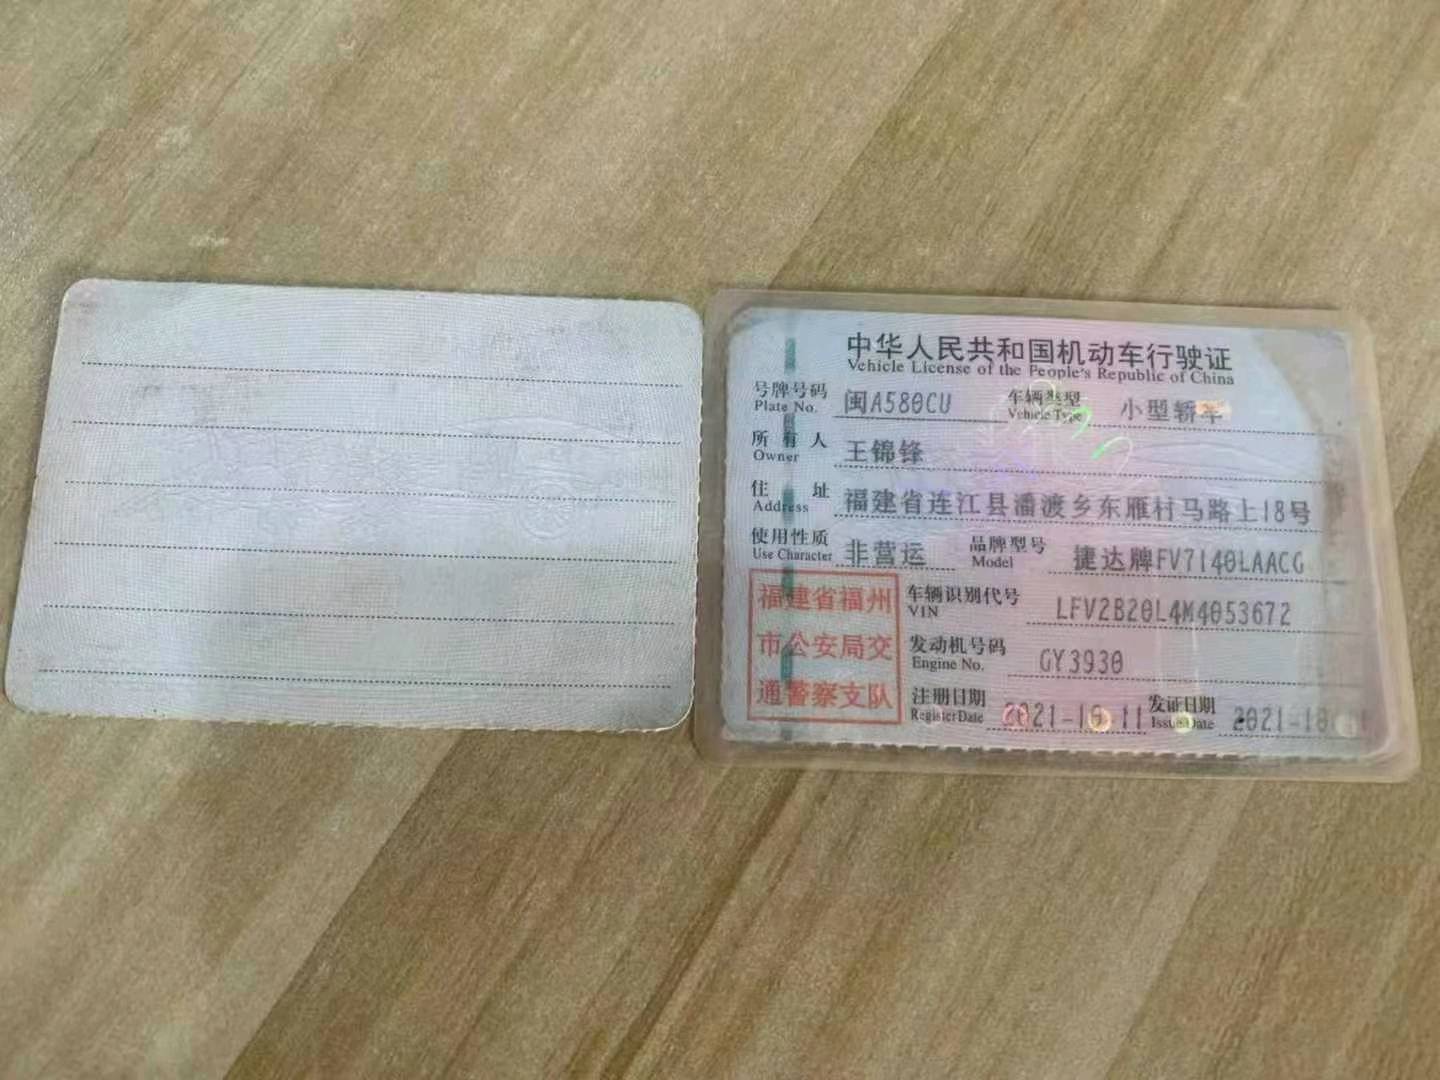 中华人民共和国机动车行驶证
Vehicle License of the People's Republic of China
号牌号码 闽A580CU 车辆类型 小型轿车
Plate No. Vehicle Type
所有人 王锦锋
Owner
住址 福建省连江县潘渡乡东雁村马路上18号
Address
使用性质 非营运 品牌型号 捷达牌FV7140LAACG
Use Character Model
福建省福州
市公安局交
通警察支队
车辆识别代号 LFV2B20L4M4053672
VIN
发动机号码 GY3930
Engine No.
注册日期 2021-10-11 发证日期 2021-10-
Register Date Issue Date